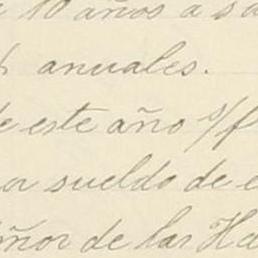 10 años a s
anuales.
de este año s/f
or sueldo de e
ñor de las Ha